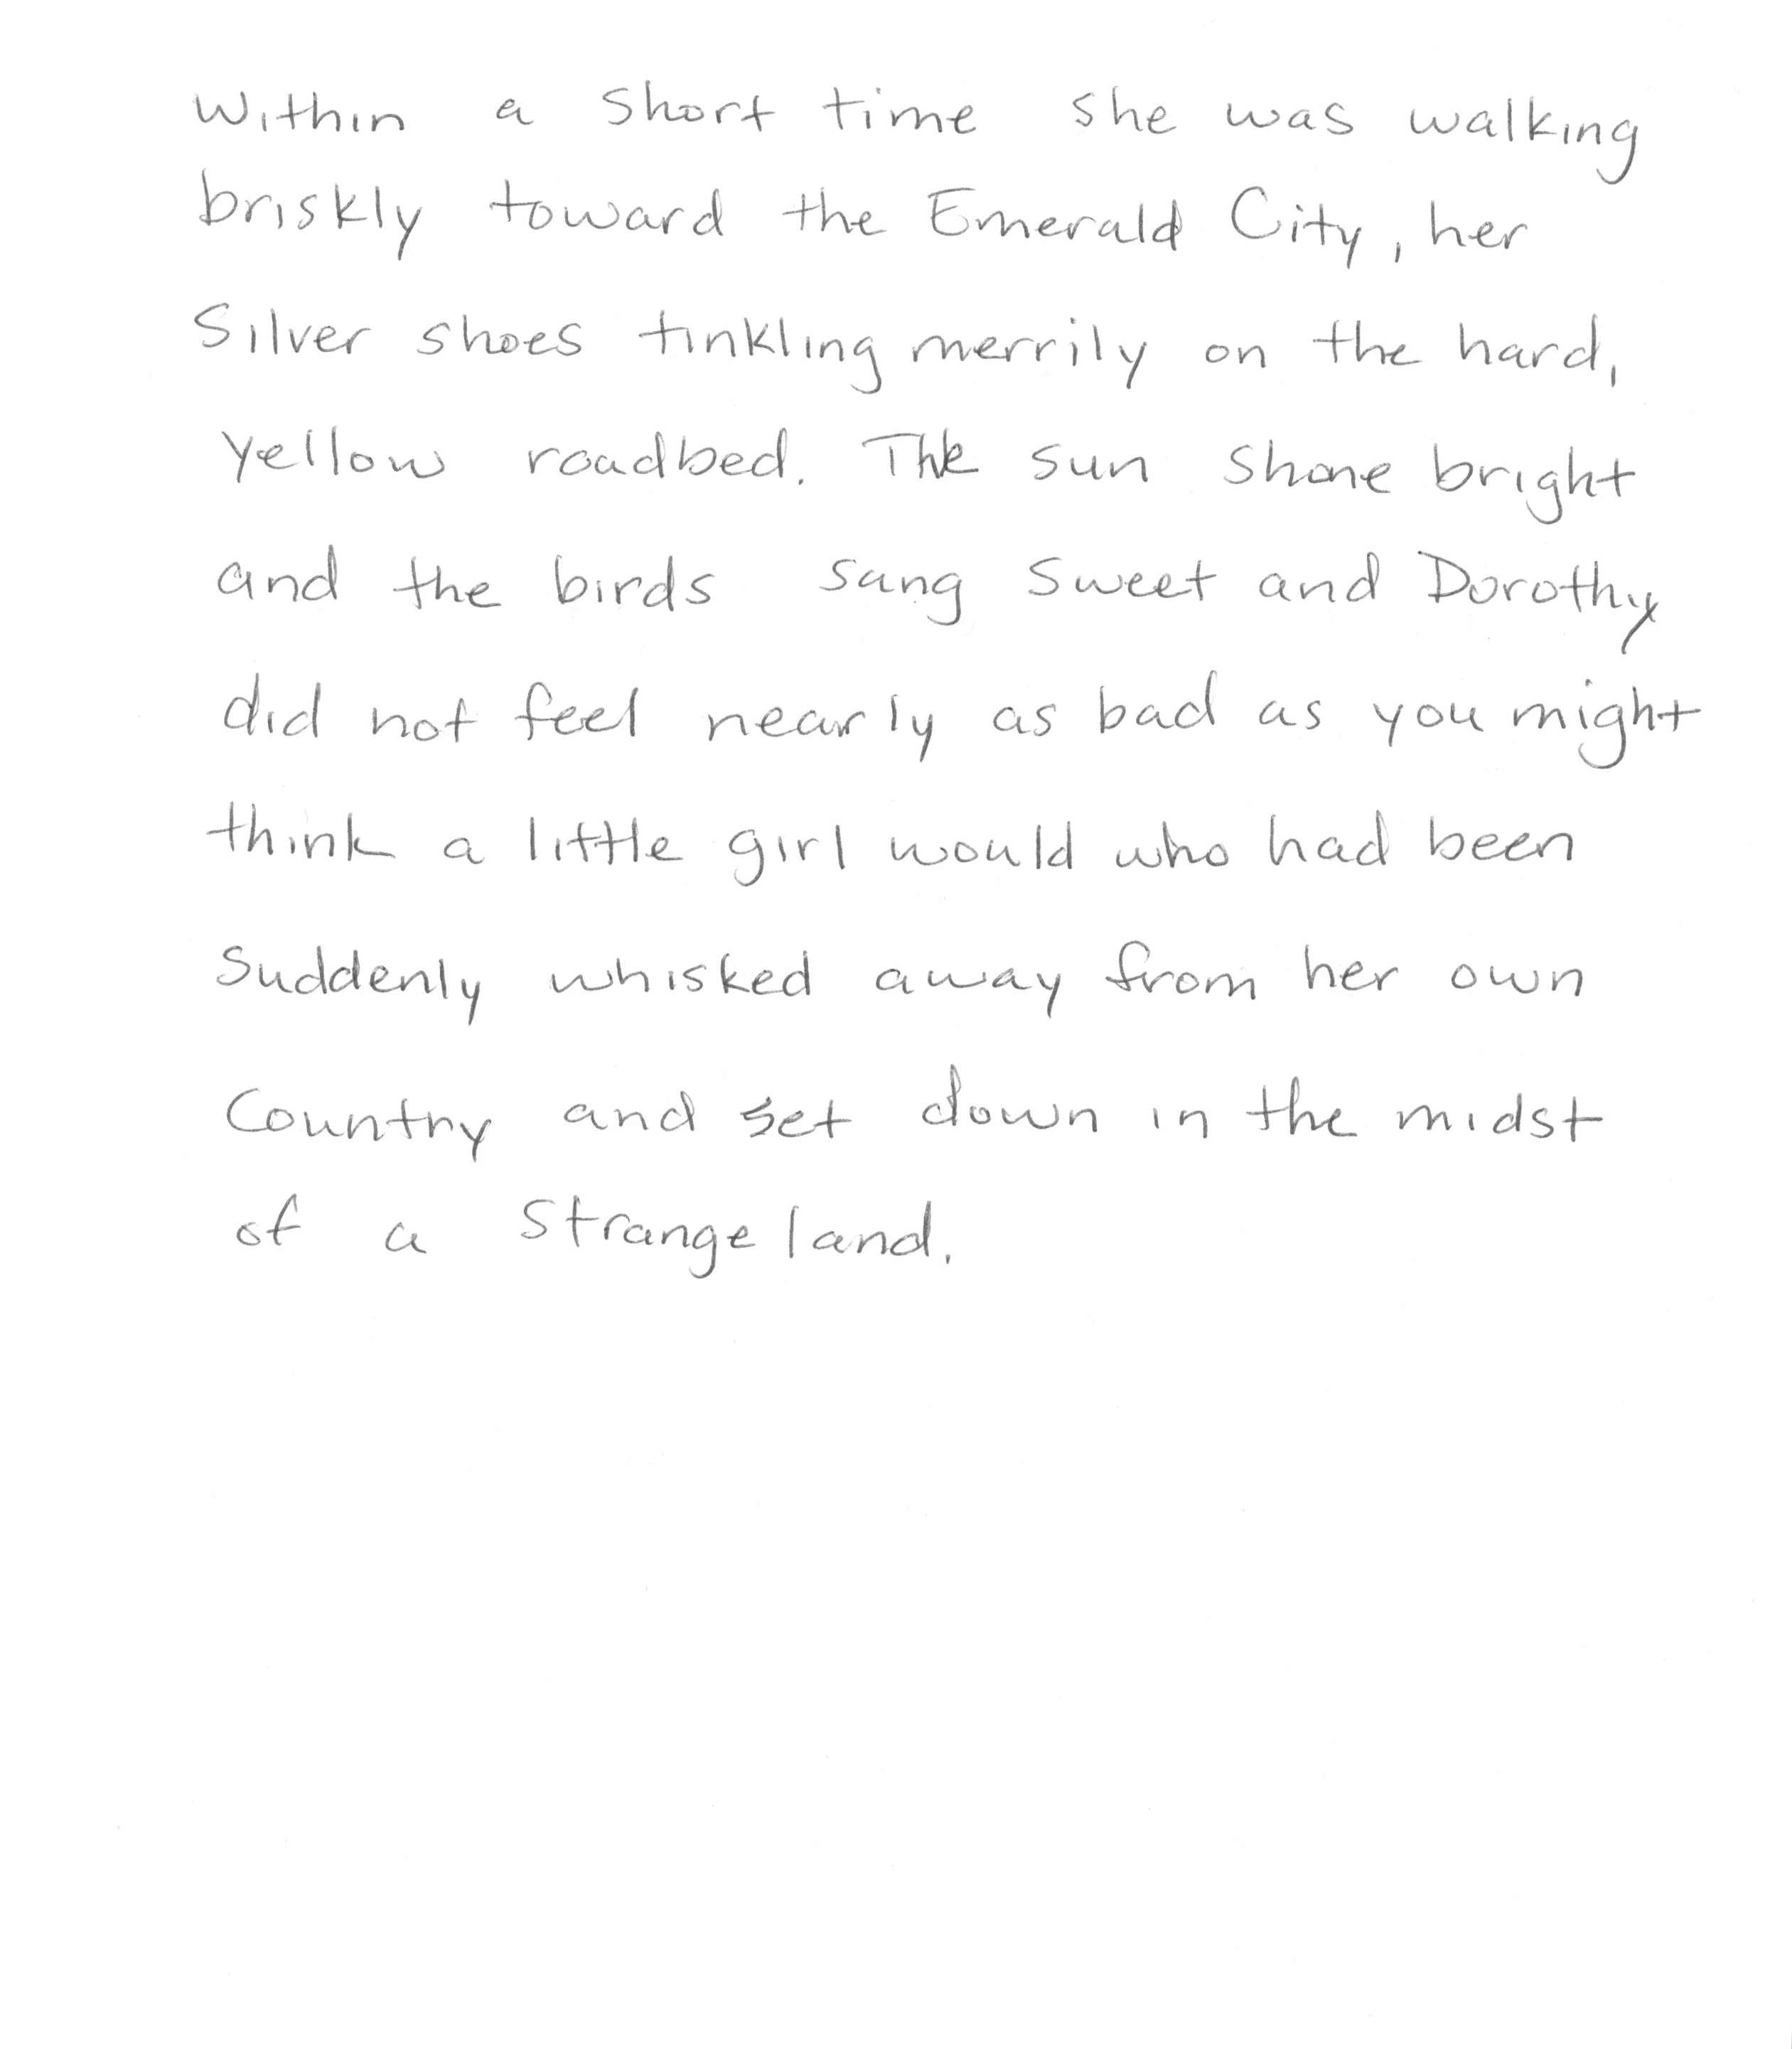 Within a short time she was walking
briskly toward the Emerald City, her
Silver shoes tinkling merrily on the hard,
yellow roadbed. The sun shone bright
and the birds sang sweet and Dorothy
did not feel nearly as bad as you might
think a little girl would who had been
suddenly whisked away from her own
Country and set down in the midst
of a strange land.